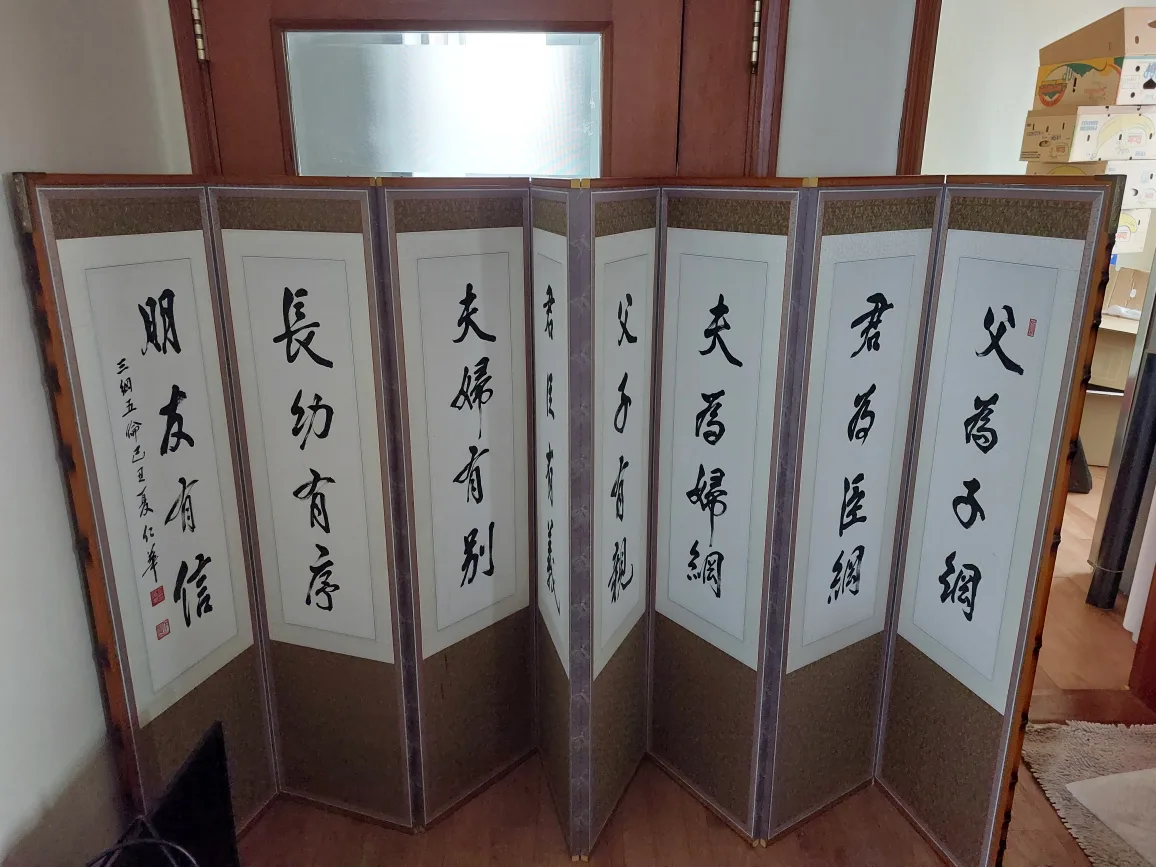 父為子綱
君為臣綱
夫為婦綱
父子有親
君臣有義
夫婦有別
長幼有序
朋友有信
三綱五倫己丑夏仁華